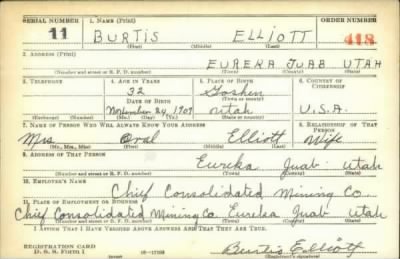 SERIAL NUMBER 1. NAME (Print) ORDER NUMBER
11 BURTIS ELLIOTT 418
(First) (Middle) (Last)
2. ADDRESS (Print)
EUREKA JUAB UTAH
(Number and street or R. F. D. number) (Town) (County) (State)
3. TELEPHONE 4. AGE IN YEARS 5. PLACE OF BIRTH 6. COUNTRY OF CITIZENSHIP
32 Goshen
DATE OF BIRTH (Town or county)
November 24, 1907 Utah U.S.A.
(Exchange) (Number) (Mo.) (Day) (Yr.) (State or country)
7. NAME OF PERSON WHO WILL ALWAYS KNOW YOUR ADDRESS 8. RELATIONSHIP OF THAT PERSON
Mrs Oral Elliott Wife
(Mr., Mrs., Miss) (First) (Middle) (Last)
9. ADDRESS OF THAT PERSON
Eureka Juab Utah
(Number and street or R. F. D. number) (Town) (County) (State)
10. EMPLOYER'S NAME
Chief Consolidated Mining Co
11. PLACE OF EMPLOYMENT OR BUSINESS
Chief Consolidated Mining Co. Eureka Juab Utah
(Number and street or R. F. D. number) (Town) (County) (State)
I AFFIRM THAT I HAVE VERIFIED ABOVE ANSWERS AND THAT THEY ARE TRUE.
REGISTRATION CARD
D. S. S. FORM 1 16—17105 Burtis Elliott
(Registrant's signature)